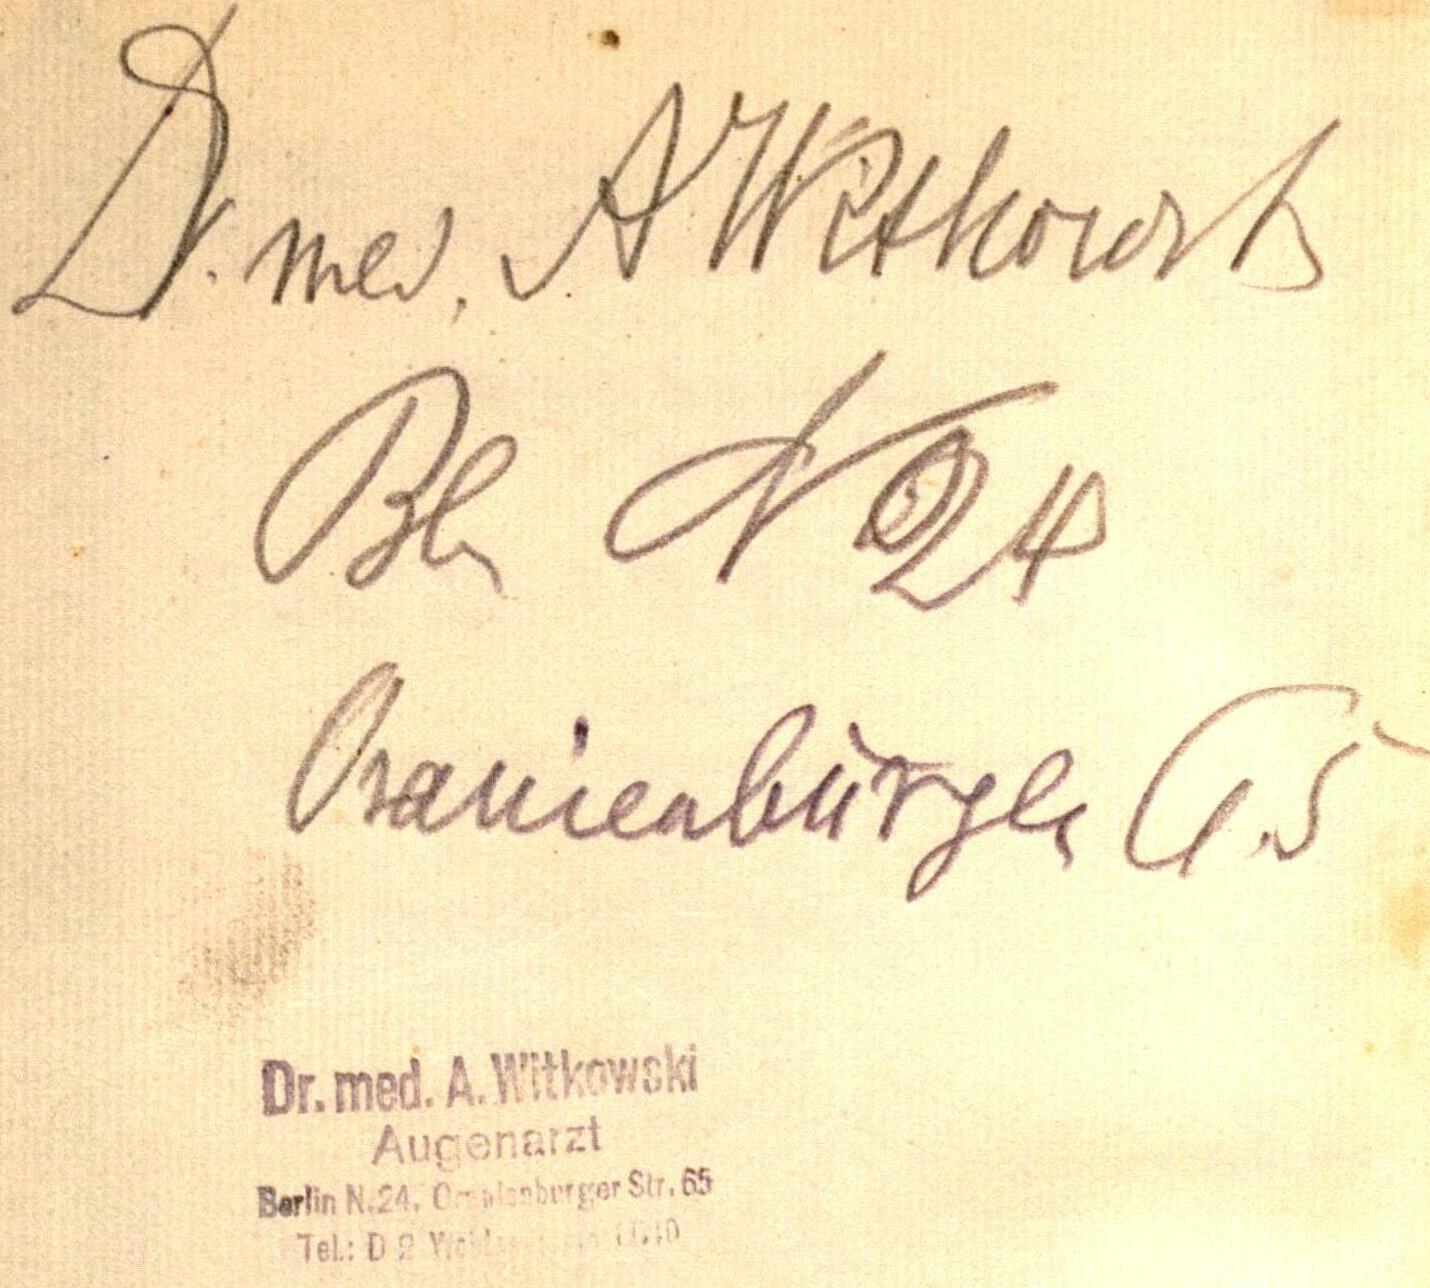 Dr. med. A Witkowski
Bln N 24
Oranienburger
Dr. med. A. Witkowski
Augenarzt
Berlin N.24, Oranienburger Str. 65
Tel.: D 2